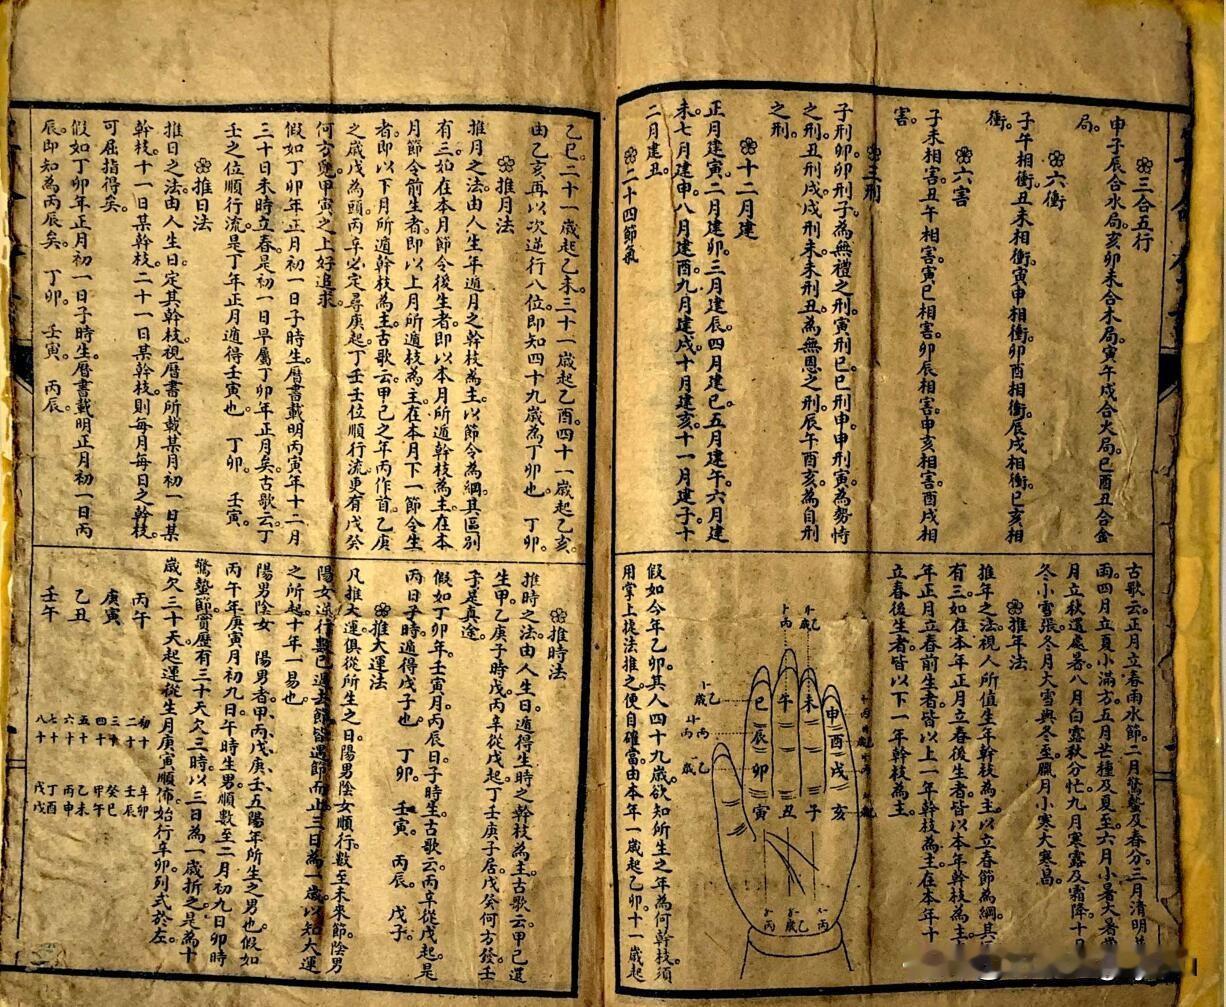 三合五行
申子辰合水局。亥卯未合木局。寅午戌合火局。巳酉丑合金
局。
六衝
子午相衝。丑未相衝。寅申相衝。卯酉相衝。辰戌相衝。巳亥相
衝。
六害
子未相害。丑午相害。寅巳相害。卯辰相害。申亥相害。酉戌相
害。
三刑
子刑卯。卯刑子。為無禮之刑。寅刑巳。巳刑申。申刑寅。為勢恃
之刑。丑刑戌。戌刑未。未刑丑。為無恩之刑。辰午酉亥。為自刑
之刑。
十二月建
正月建寅。二月建卯。三月建辰。四月建巳。五月建午。六月建
未。七月建申。八月建酉。九月建戌。十月建亥。十一月建子。十
二月建丑。
二十四節氣
古歌云。正月立春雨水節。二月驚蟄及春分。三月清明
雨。四月立夏小滿方。五月芒種及夏至。六月小暑大暑
月立秋還處暑。八月白露秋分忙。九月寒露及霜降。十月
冬小雪漲。冬月大雪與冬至。臘月小寒大寒昌。
推年法
推年之法。視人所值生年幹枝為主。以立春節為綱。其
有三。如在本年正月立春後生者。皆以本年幹枝為主。
年正月立春前生者。皆以上一年幹枝為主。在本年十
立春後生者。皆以下一年幹枝為主。
申
未
午
巳
酉
辰
戌
卯
亥
子
丑
寅
假如今年乙卯。其人四十九歲。欲知所生之年為何幹枝。須
用掌上捷法推之。便自確當。由本年一歲起乙卯。十一歲起
乙巳。二十一歲起乙未。三十一歲起乙酉。四十一歲起乙亥。
由乙亥再以次逆行八位。即知四十九歲為丁卯也。 丁卯。
推月法
推月之法。由人生年遁月之幹枝為主。以節令為綱。其區別
有三。如在本月節令後生者。即以本月所遁幹枝為主。在本
月節令前生者。即以上月所遁枝為主。在本月下一節令生
者。即以下月所遁幹枝為主。古歌云。甲己之年丙作首。乙庚
之歲戊為頭。丙辛必定尋庚起。丁壬壬位順行流。更有戊癸
何方覓。甲寅之上好追求。
假如丁卯年正月初一日子時生。曆書載明丙寅年十二月
三十日未時立春。是初一日早屬丁卯年正月矣。古歌云。丁
壬之位順行流。是丁年正月遁得壬寅也。 丁卯。 壬寅。
推日法
推日之法。由人生日定其幹枝。視曆書所載某月初一日某
幹枝。十一日某幹枝。二十一日某幹枝。則每月每日之幹枝。
可屈指得矣。
假如丁卯年正月初一日子時生。曆書載明正月初一日丙
辰。即知為丙辰矣。 丁卯。 壬寅。 丙辰。
推時法
推時之法。由人生日遁得生時之幹枝為主。古歌云。甲己還
生甲。乙庚子時。戊丙辛從戊起。丁壬庚子居。戊癸何方發。壬
子是真途。
假如丁卯年。壬寅月。丙辰日。子時生。古歌云。丙辛從戊起。是
丙日子時遁得戊子也。 丁卯。 壬寅。 丙辰。 戊子。
推大運法
凡推大運。俱從所生之日。陽男陰女順行。數至未來節。陰男
陽女逆行。數已過去節。皆遇節而止。三日為一歲。以知大運
之所起。十年一易也。
陽男陰女 陽男者。甲、丙、戊、庚、壬五陽年所生之男也。假如
丙午年庚寅月初九日午時生男。順數至二月初九日卯時
驚蟄節。實歷有三十天欠三時。以三日為一歲折之。是為十
歲欠三十天起運。從生月庚寅順佈。始行辛卯。列式於左。
丙午 初十 辛卯
二十 壬辰
庚寅 三十 癸巳
四十 甲午
乙丑 五十 乙未
六十 丙申
壬午 七十 丁酉
八十 戊戌